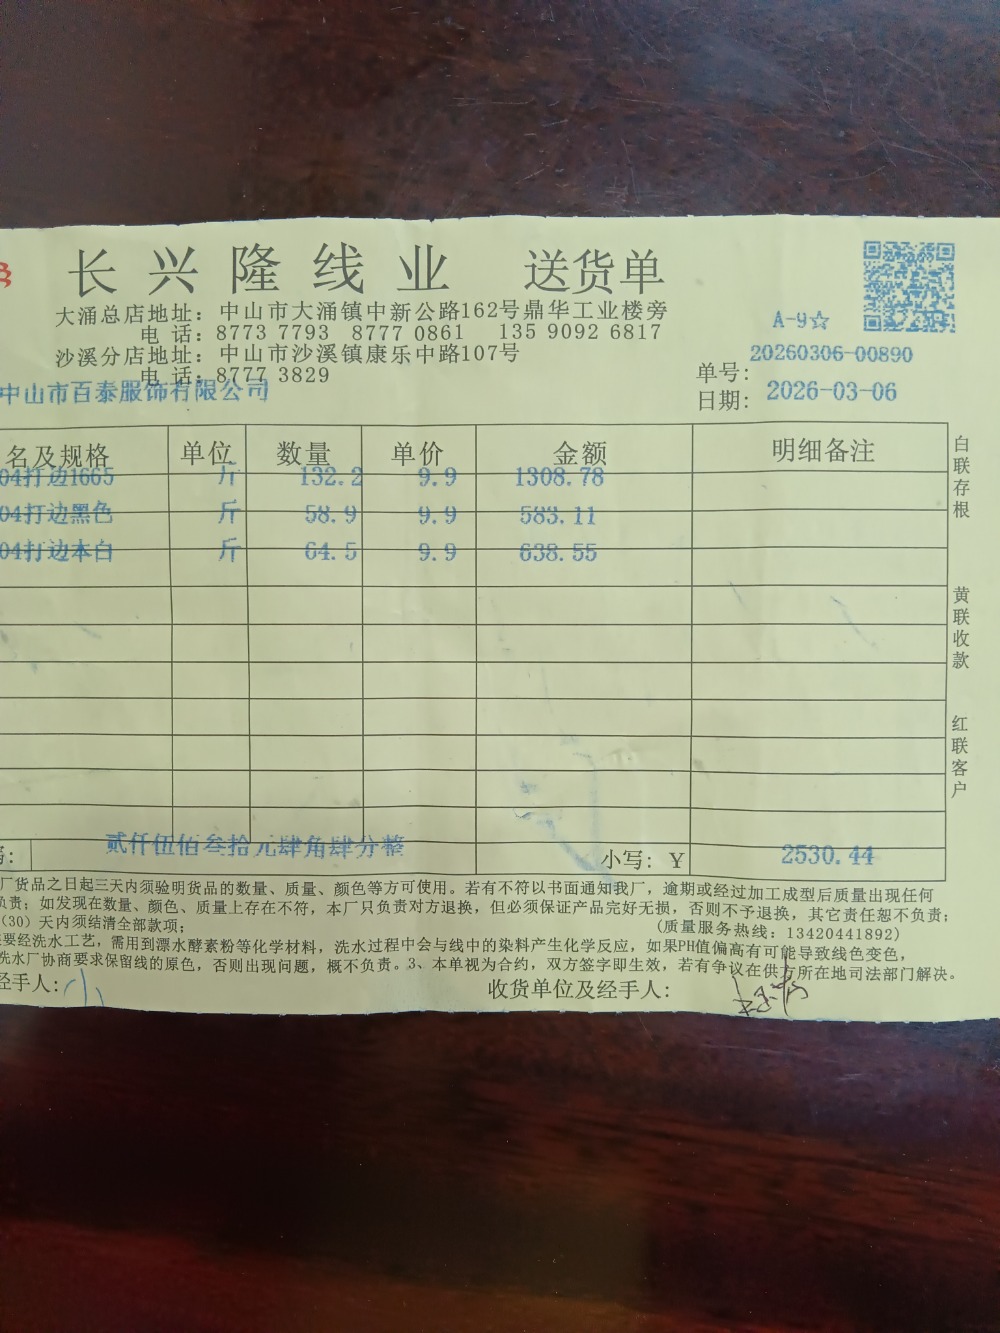 长兴隆线业 送货单
大涌总店地址：中山市大涌镇中新公路162号鼎华工业楼旁
电话：8773 7793 8777 0861 135 9092 6817
A-9☆
沙溪分店地址：中山市沙溪镇康乐中路107号
电话：8777 3829
单号：20260306-00890
中山市百泰服饰有限公司
日期：2026-03-06
名及规格 单位 数量 单价 金额 明细备注
04打边1665 斤 132.2 9.9 1308.78
04打边黑色 斤 58.9 9.9 583.11
04打边本白 斤 64.5 9.9 638.55
白联存根
黄联收款
红联客户
贰仟伍佰叁拾元肆角肆分整 小写：¥ 2530.44
厂货品之日起三天内须验明货品的数量、质量、颜色等方可使用。若有不符以书面通知我厂，逾期或经过加工成型后质量出现任何
负责；如发现在数量、颜色、质量上存在不符，本厂只负责对方退换，但必须保证产品完好无损，否则不予退换，其它责任恕不负责；
(30）天内须结清全部款项； (质量服务热线：13420441892)
要经洗水工艺，需用到漂水酵素粉等化学材料，洗水过程中会与线中的染料产生化学反应，如果PH值偏高有可能导致线色变色，
洗水厂协商要求保留线的原色，否则出现问题，概不负责。3、本单视为合约，双方签字即生效，若有争议在供方所在地司法部门解决。
经手人：小 收货单位及经手人：